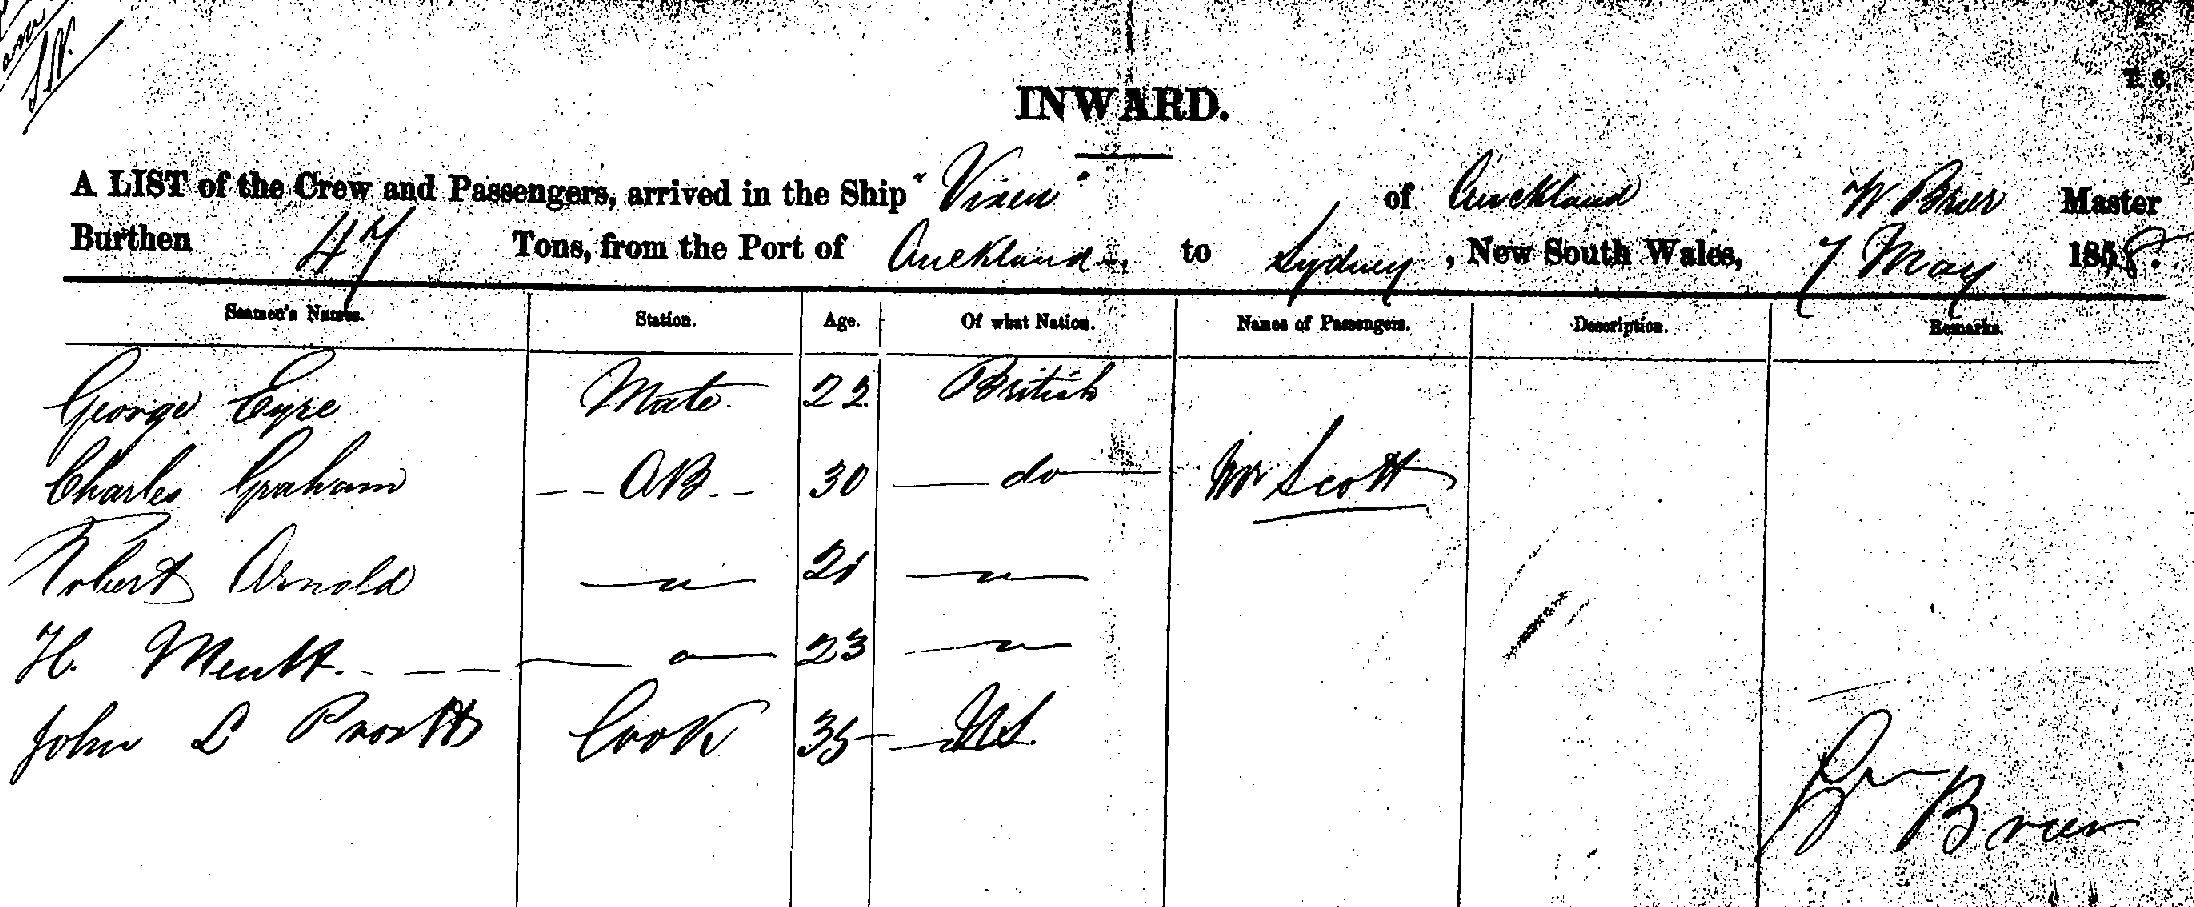 INWARD.
A LIST of the Crew and Passengers, arrived in the Ship "Vixen" of Auckland W Brier Master
Burthen 47 Tons, from the Port of Auckland to Sydney, New South Wales, 7 May 1858.
Seamen's Names. Station. Age. Of what Nation. Names of Passengers. Description. Remarks.
George Eyre Mate 22 British
Charles Graham AB 30 do Mr Scott
Robert Arnold " 21 "
H. " 23 "
John L Cook 35 US
Brier